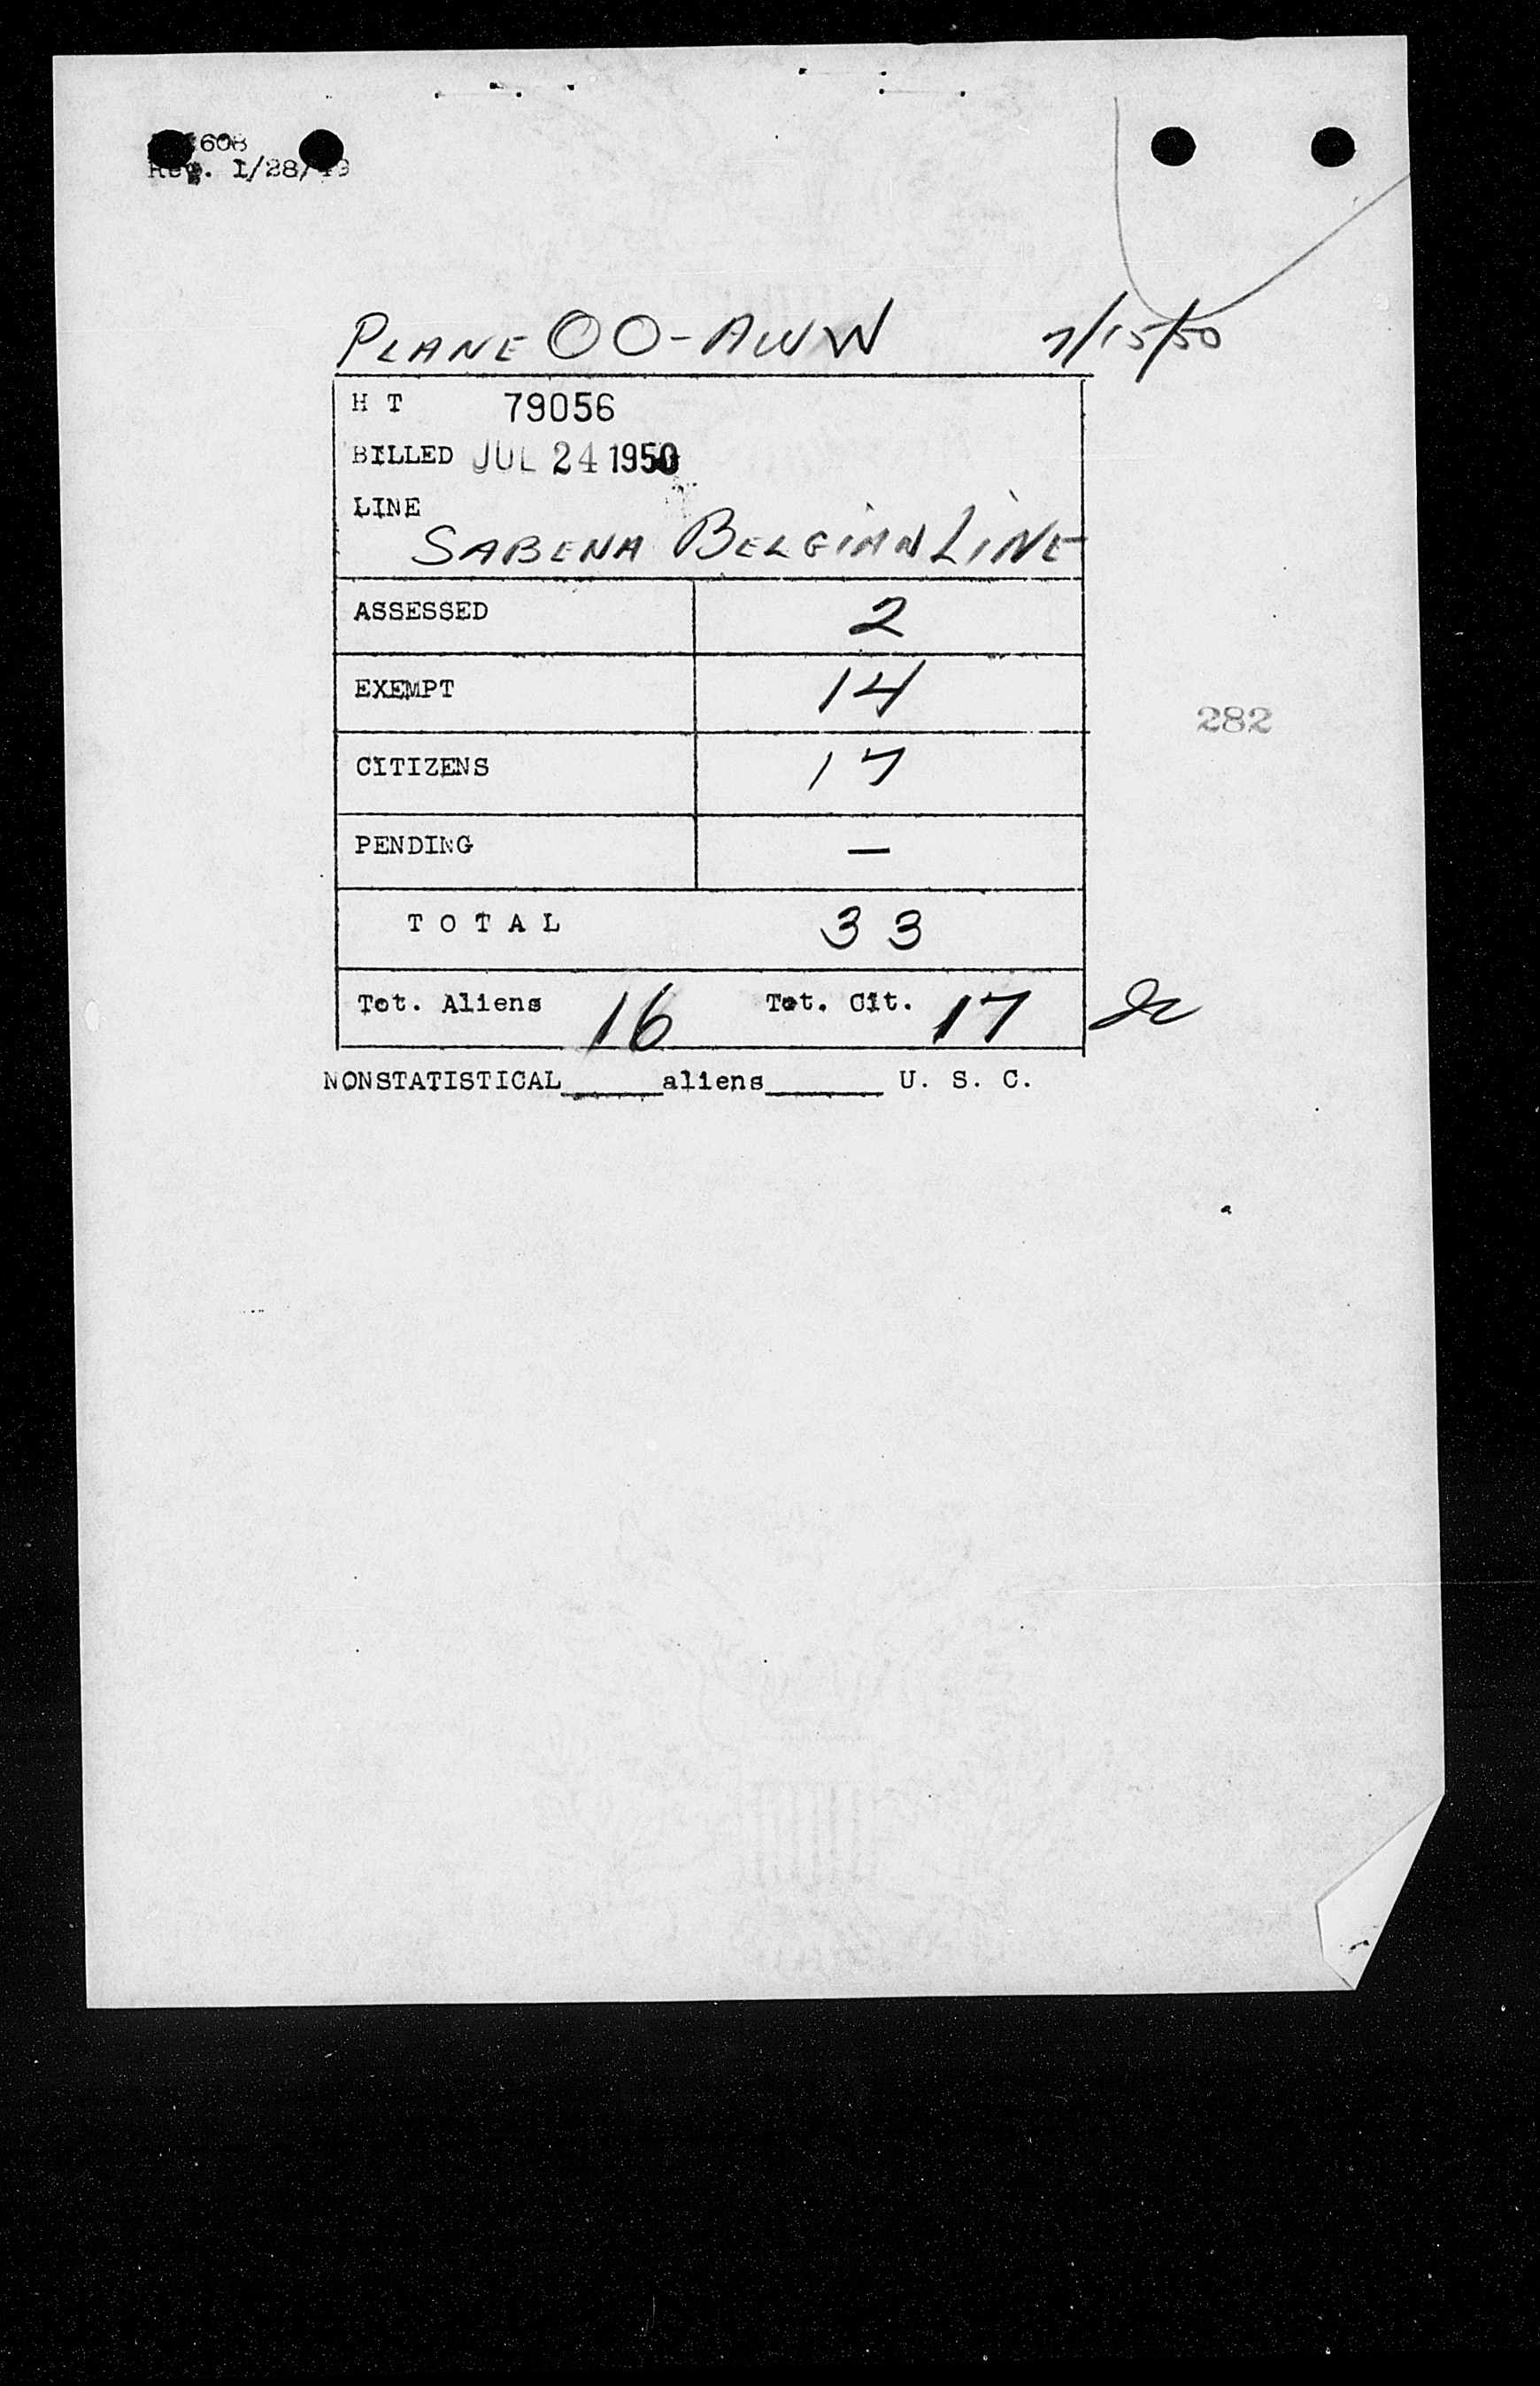 608
Rev. 1/28/49
PLANE OO-AWW 7/15/50
H T 79056
BILLED JUL 24 1950
LINE
SABENA BELGIAN LINE
ASSESSED 2
EXEMPT 14
282
CITIZENS 17
PENDING —
T O T A L 33
Tot. Aliens 16 Tot. Cit. 17
NONSTATISTICAL_____aliens______ U. S. C.